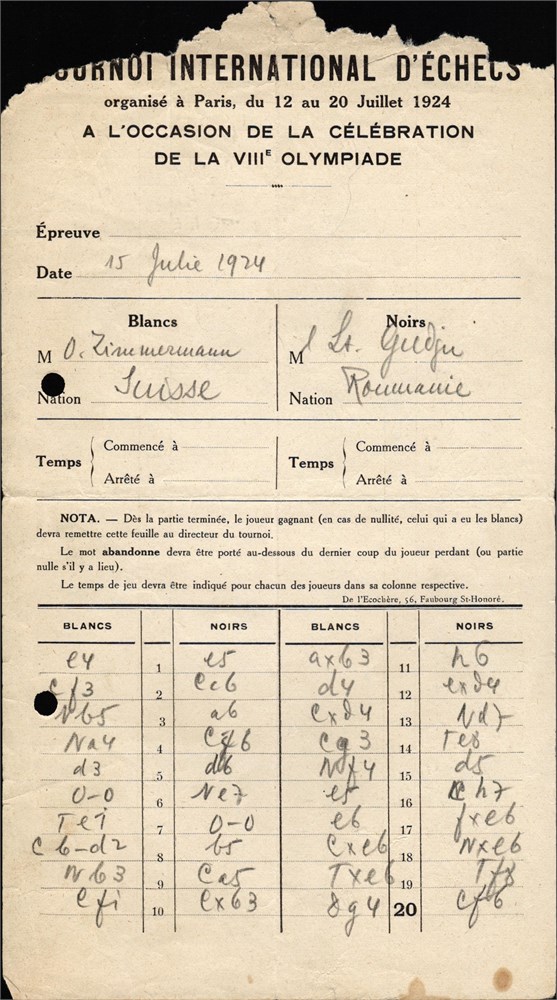 TOURNOI INTERNATIONAL D'ÉCHECS
organisé à Paris, du 12 au 20 Juillet 1924
A L'OCCASION DE LA CÉLÉBRATION
DE LA VIIIᴱ OLYMPIADE
Épreuve
Date 15 Julie 1924
Blancs Noirs
M O. Zimmermann M St. Gudju
Nation Suisse Nation Roumanie
Temps Commencé à Temps Commencé à
Arrêté à Arrêté à
NOTA. — Dès la partie terminée, le joueur gagnant (en cas de nullité, celui qui a eu les blancs)
devra remettre cette feuille au directeur du tournoi.
Le mot abandonne devra être porté au-dessous du dernier coup du joueur perdant (ou partie
nulle s'il y a lieu).
Le temps de jeu devra être indiqué pour chacun des joueurs dans sa colonne respective.
De l'Ecochère, 56, Faubourg St-Honoré.
BLANCS NOIRS BLANCS NOIRS
e4 1 e5 axb3 11 h6
Cf3 2 Cc6 d4 12 exd4
Nb5 3 a6 Cxd4 13 Nd7
Na4 4 Cf6 Cg3 14 Te8
d3 5 d6 Nf4 15 d5
0-0 6 Ne7 e5 16 Ch7
Te1 7 0-0 e6 17 fxe6
Cb-d2 8 b5 Cxe6 18 Nxe6
Nb3 9 Ca5 Txe6 19 Tf8
Cf1 10 Cxb3 Dg4 20 Cf6